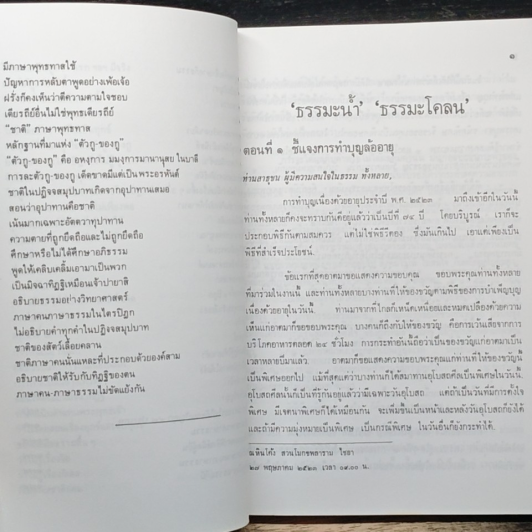 มีภาษาพุทธทาสใช้
ปัญหาการหลับตาพูดอย่างเพ้อเจ้อ
ฝรั่งก็คงเห็นว่าตีความตามใจชอบ
เดียรถีย์อื่นไม่ใช่พุทธเดียรถีย์
"ชาติ" ภาษาพุทธทาส
หลักฐานที่มาแห่ง "ตัวกู-ของกู"
"ตัวกู-ของกู" คือ อหงการ มมงการมานานุสย ในบาลี
การละตัวกู-ของกู เด็ดขาดมีแต่เป็นพระอรหันต์
ชาติในปฏิจจสมุปบาทเกิดจากอุปาทานเสมอ
สอนว่าอุปาทานคือชาติ
เน้นมากเฉพาะอัตตวาทุปาทาน
ความตายที่ถูกยึดถือและไม่ถูกยึดถือ
ศึกษาหรือไม่ได้ศึกษาอภิธรรม
พูดให้เคลิบเคลิ้มเอามาเป็นพวก
เป็นมิจฉาทิฏฐิเหมือนเจ้าปายาสิ
อธิบายธรรมอย่างวิทยาศาสตร์
ภาษาคนภาษาธรรมในไตรปิฎก
ไม่อธิบายคำทุกคำในปฏิจจสมุปบาท
ชาติของสัตว์เลื้อยคลาน
ชาติภาษาคนนั่นแหละที่ประกอบด้วยองค์สาม
อธิบายชาติให้รับกับทิฏฐิของตน
ภาษาคน-ภาษาธรรมไม่ขัดแย้งกัน
๑
'ธรรมะน้ำ' 'ธรรมะโคลน'
ตอนที่ ๑ ชี้แจงการทำบุญล้ออายุ
ท่านสาธุชน ผู้มีความสนใจในธรรม ทั้งหลาย,
การทำบุญเนื่องด้วยอายุประจำปี พ.ศ. ๒๕๒๓ มาถึงเข้าอีกในวันนี้
ท่านทั้งหลายก็คงจะทราบกันดีอยู่แล้วว่าเป็นปีที่ ๗๔ ปี โดยบริบูรณ์ เราก็จะ
ประกอบพิธีกันตามสมควร แต่ไม่ใช่พิธีรีตอง ซึ่งมันเกินไป เอาแต่เพียงเป็น
พิธีที่สำเร็จประโยชน์.
ข้อแรกที่สุดอาตมาขอแสดงความขอบคุณ ขอบพระคุณท่านทั้งหลาย
ที่มาร่วมในงานนี้ และท่านทั้งหลายบางท่านที่ให้ของขวัญตามพิธีของการบำเพ็ญบุญ
เนื่องด้วยอายุในวันนี้. ท่านมาจากที่ไกลก็เหน็ดเหนื่อยและหมดเปลืองด้วยความ
เห็นแก่อาตมาก็ขอขอบพระคุณ บางคนก็ถึงกับให้ของขวัญ คือการเว้นเสียจากการ
บริโภคอาหารตลอด ๒๔ ชั่วโมง การกระทำอันนี้ถือว่าเป็นของขวัญแก่อาตมาเป็น
เวลาหลายปีมาแล้ว. อาตมาก็ขอแสดงความขอบพระคุณแก่ท่านที่ให้ของขวัญนี้
เป็นพิเศษออกไป แม้ที่สุดแต่ว่าบางท่านก็ได้สมาทานอุโบสถศีลเป็นพิเศษในวันนี้.
อุโบสถศีลนั้นก็เป็นที่รู้กันอยู่แล้วว่ามีเฉพาะวันอุโบสถ แต่ถ้าเป็นวันที่มีการตั้งใจ
พิเศษ มีเจตนาพิเศษก็ได้เหมือนกัน จะเพิ่มขึ้นเป็นหน้าและหลังวันอุโบสถก็ยังได้
และถ้ามีความมุ่งหมายเป็นพิเศษ เป็นกรณีพิเศษ ในวันอื่นก็ยังกระทำได้.
ณ หินโค้ง สวนโมกขพลาราม ไชยา
๒๗ พฤษภาคม ๒๕๒๓ เวลา ๐๙.๐๐ น.